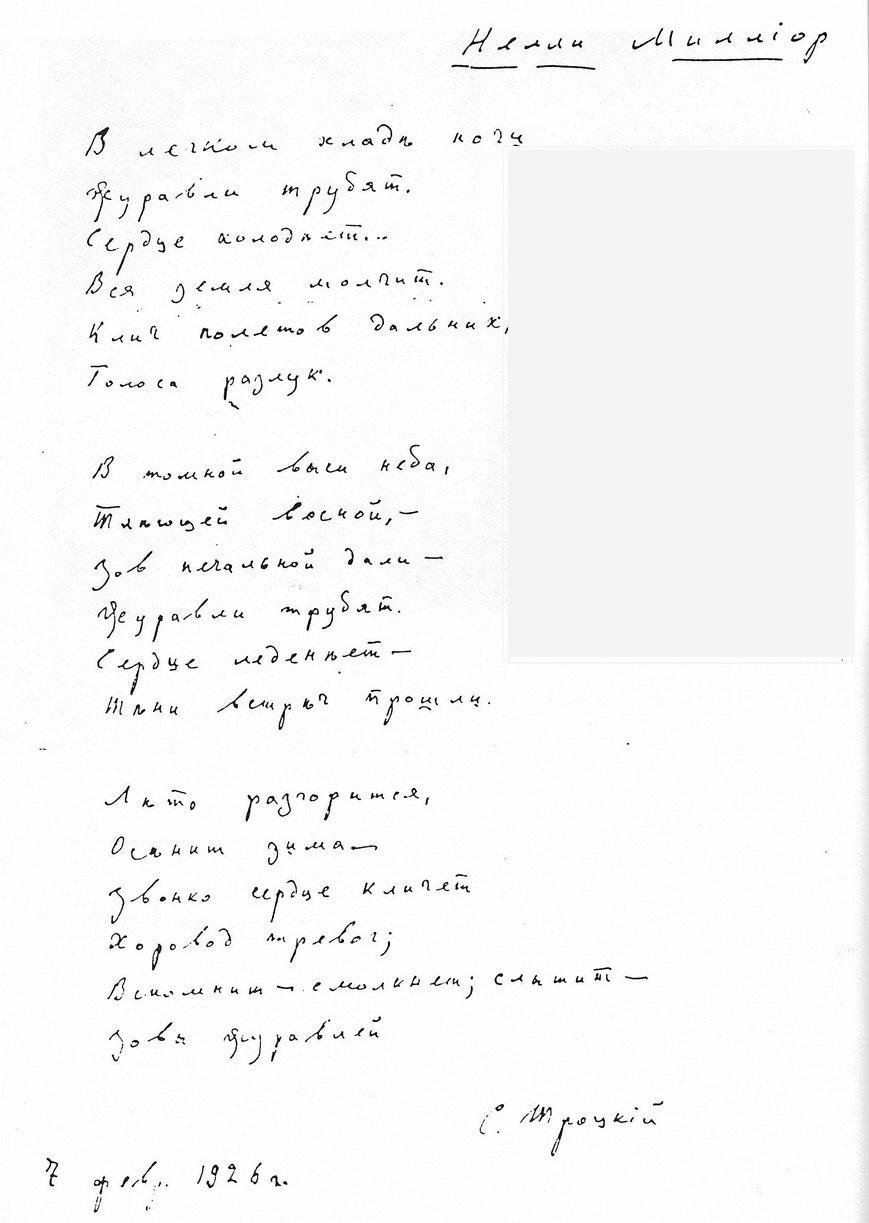 Нелли Миллiор
В легком хладѣ ночи
Журавли трубят.
Сердце холодѣет...
Вся земля молчит.
Клич полетов дальних,
Голоса разлук.
В томной выси неба,
Тлѣющей весной, —
Зов печальной дали —
Журавли трубят.
Сердце леденѣет —
Тѣни встрѣч прошли.
Лѣто разгорится,
Осѣнит зима —
Звонко сердце кличет
Хоровод тревог;
Вспомнит — смолкнет; слышит —
Зовы журавлей
С. Троцкiй
7 февр. 1926 г.